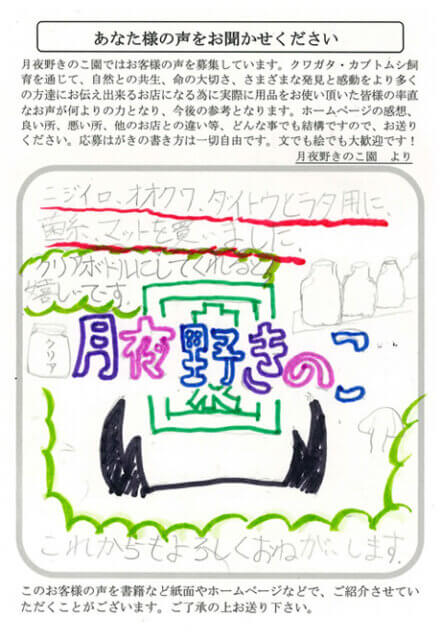 あなた様の声をお聞かせください
月夜野きのこ園ではお客様の声を募集しています。クワガタ・カブトムシ飼
育を通じて、自然との共生、命の大切さ、さまざまな発見と感動をより多く
の方達にお伝え出来るお店になる為に実際に用品をお使い頂いた皆様の率直
なお声が何よりの力となり、今後の参考となります。ホームページの感想、
良い所、悪い所、他のお店との違い等、どんな事でも結構ですので、お送り
ください。応募はがきの書き方は一切自由です。文でも絵でも大歓迎です！
月夜野きのこ園 より
ニジイロ、オオクワ、タイトウヒラタ用に、
菌糸、マットを買いました。
クリアボトルにしてくれると
嬉しいです。
クリア
月夜野きのこ
園
これからもよろしくおねがいします。
このお客様の声を書籍など紙面やホームページなどで、ご紹介させてい
ただくことがございます。ご了承の上お送り下さい。